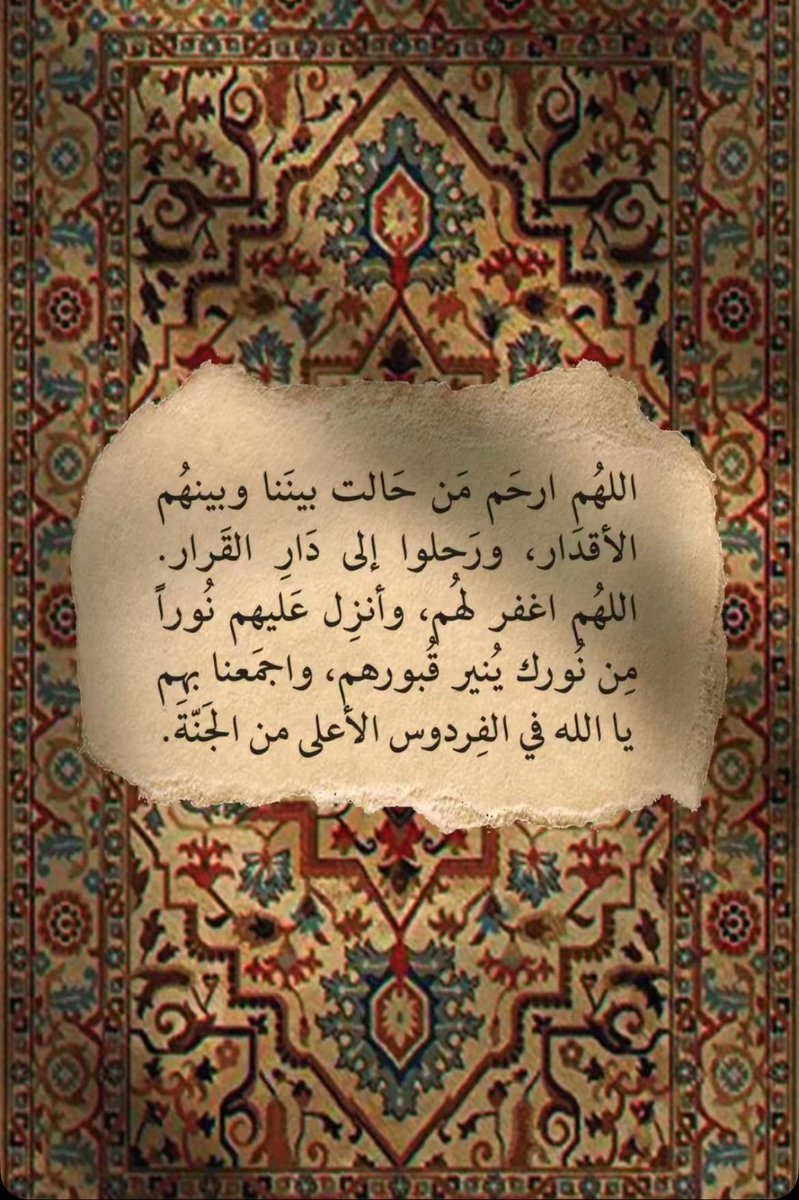 اللهُم ارحَم مَن حَالت بينَنا وبينهُم
الأقدَار، ورَحلوا إلى دَارِ القَرار.
اللهُم اغفر لهُم، وأنزِل عَليهم نُوراً
مِن نُورك يُنير قُبورهم، واجمَعنا بهِم
يا الله في الفِردوس الأعلى من الجَنّةَ.